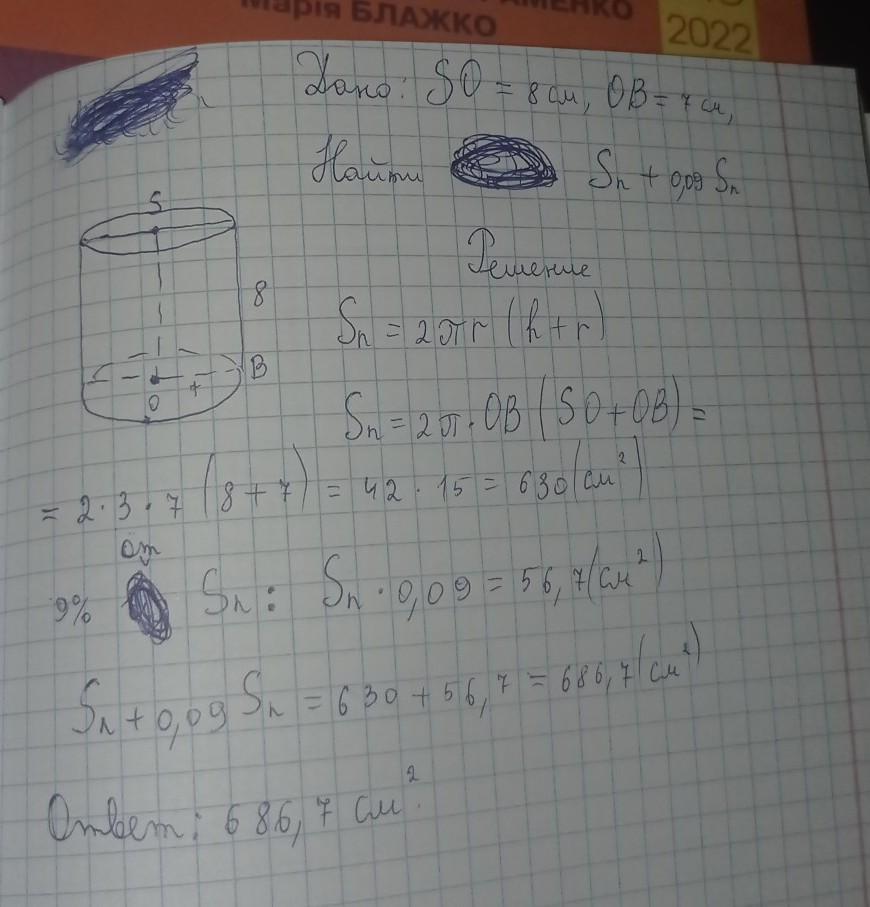 Марія БЛАЖКО
2022
Дано: SO = 8 см, OB = 7 см,
Найти Sп + 0,09 Sп
S
8
B
O
Решение
Sп = 2πr (h + r)
Sп = 2π · OB (SO + OB) =
= 2 · 3 · 7 (8 + 7) = 42 · 15 = 630 (см²)
от
9% Sп : Sп · 0,09 = 56,7 (см²)
Sп + 0,09 Sп = 630 + 56,7 = 686,7 (см²)
Ответ: 686,7 см².